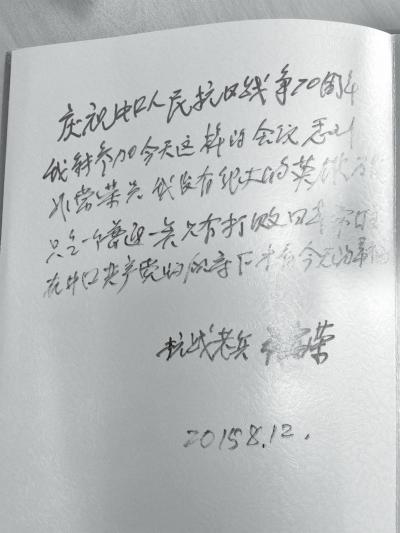 庆祝中国人民抗日战争70周年
我能参加今天这样的会议感到
非常荣光 我没有很大的英雄
只是一个普通一兵 只有打败日
在中国共产党的领导下才有今天的幸福
抗战老兵 荣
2015.8.12.